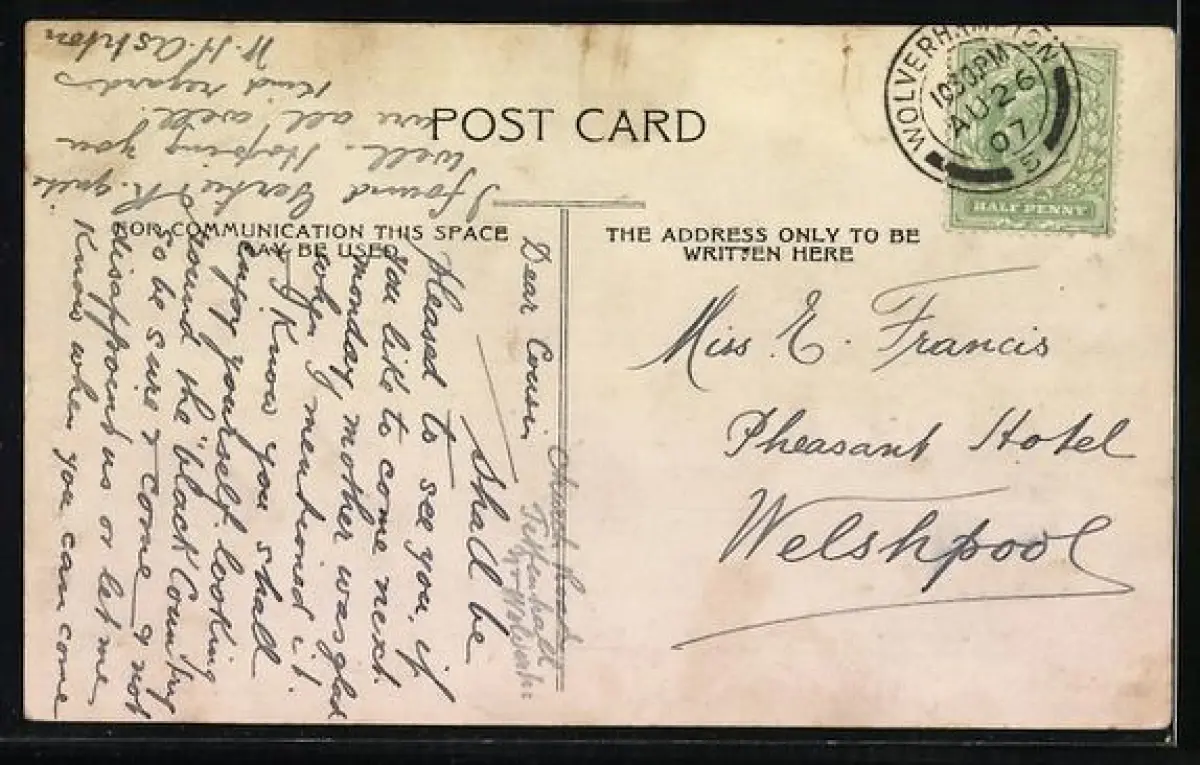 POST CARD
FOR COMMUNICATION THIS SPACE
MAY BE USED
THE ADDRESS ONLY TO BE
WRITTEN HERE
WOLVERHAMPTON
1030PM
AU 26
07
5
HALF PENNY
Miss E. Francis
Pheasant Hotel
Welshpool
Church Road
Tettenhall
Dear Cousin
Shall be
pleased to see you, if
you like to come next
monday, mother was glad
when I mentioned it.
I know you shall
enjoy yourself looking
round the "black Country
to be sure & come & not
disappoint us or let me
know when you can come
I found Gertie & R. quite
well. Hoping you
are all well.
Kind regards
W. H. Ashton